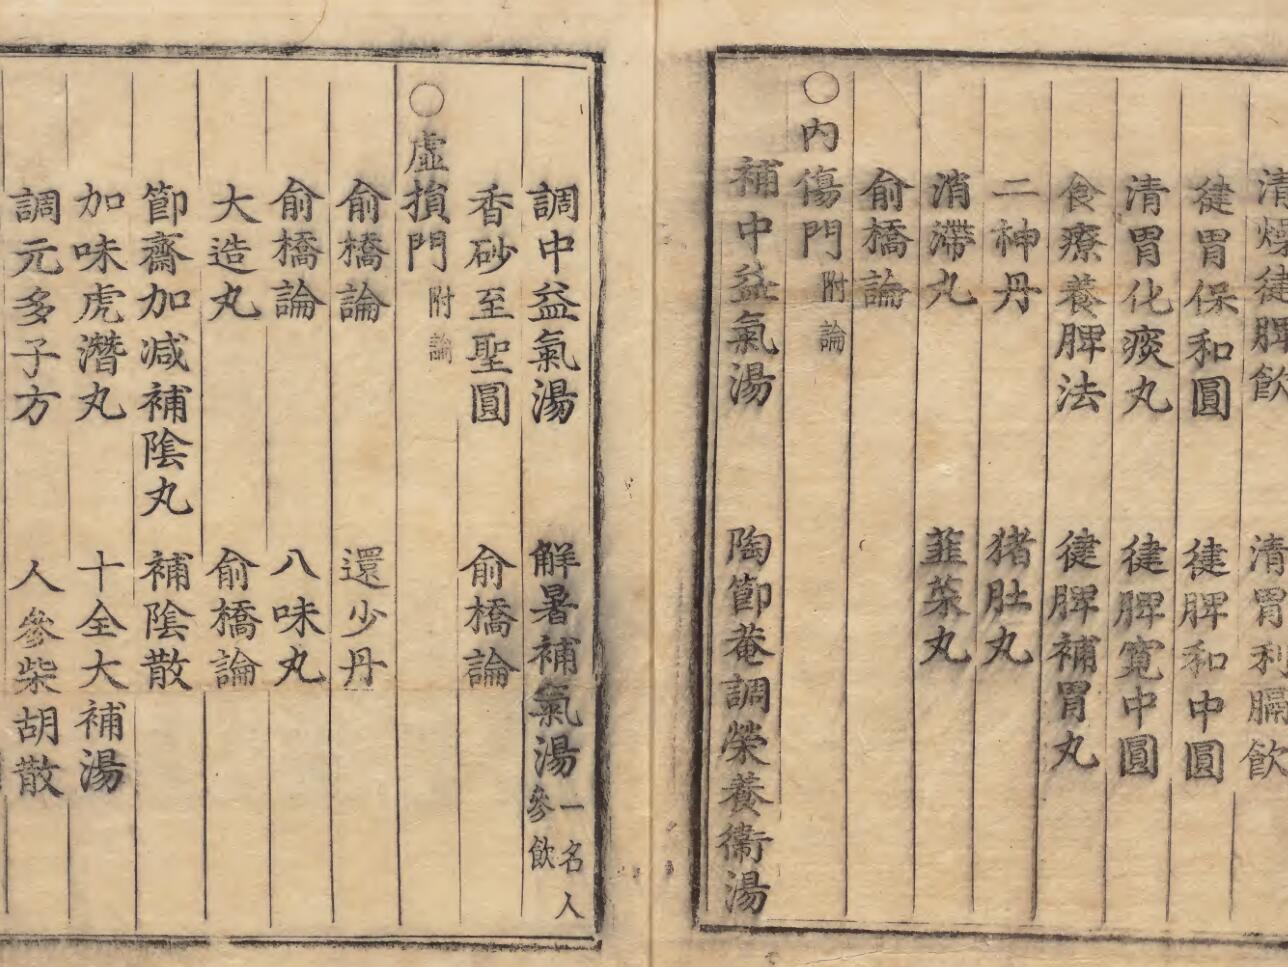 清燥健脾飲 清胃利膈飲
健胃保和圓 健脾和中圓
清胃化痰丸 健脾寬中圓
食療養脾法 健脾補胃丸
二神丹 猪肚丸
消滯丸 韮菜丸
俞橋論
○內傷門 附論
補中益氣湯 陶節菴調榮養衞湯
調中益氣湯 解暑補氣湯 一名人參飲
香砂至聖圓 俞橋論
○虛損門 附論
俞橋論 還少丹
俞橋論 八味丸
大造丸 俞橋論
節齋加减補陰丸 補陰散
加味虎潛丸 十全大補湯
調元多子方 人參柴胡散